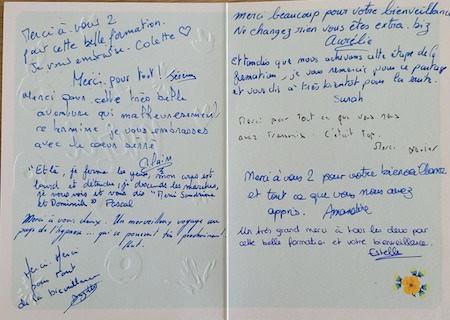 Merci à vous 2
pour cette belle formation.
Je vous embrasse. Colette
Merci pour tout!
Merci pour cette très belle
aventure qui malheureusement
se termine, je vous embrasses
avec le cœur serré
Alain
"Et là, je ferme les yeux, mon corps est
lourd et détendu, je descends les marches,
je vous vois et vous dis "Merci Sandrine
et Dominik" Pascal
Merci à vous deux. Un merveilleux voyage au
pays de l'hypnose... qui se poursuit très prochainement
Merci. Merci
pour tout
de la bienveillance
merci beaucoup pour votre bienveillance
Ne changez rien vous êtes extra. biz
Aurélie
Et tandis que nous achevons cette étape de la
formation, je vous remercie pour ce partage
et vous dis à très bientôt pour la suite.
Sarah
Merci pour tout ce que vous nous
avez transmis. C'était top.
Merci
Merci à vous 2 pour votre bienveillance
et tout ce que vous nous avez
appris.
Un très grand merci à tous les deux pour
cette belle formation et votre bienveillance.
Estelle